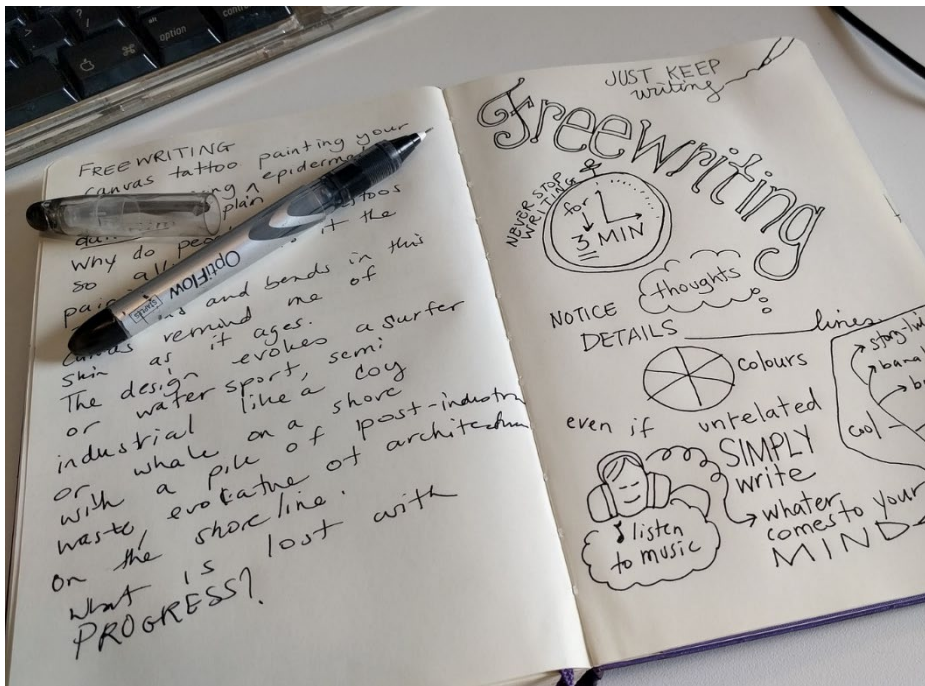 alt
option
⌘
option
FREEWRITING
canvas tattoo painting your
epiderm
plan
Why do
so
it the
and bends in this
canvas remind me of
skin as it ages.
The design evokes a surfer
or water sport, semi
industrial like a
or whale on a shore
with a pile of post-industria
waste, evocative of architectur
on the shoreline.
What is lost with
PROGRESS?
OptiFlow
JUST KEEP
writing
Freewriting
NEVER STOP
WRITING
for
3 MIN
thoughts
NOTICE
DETAILS
lines
colours
even if unrelated
story-
bana
cool
SIMPLY
write
whater
comes to your
MIND
listen
to music